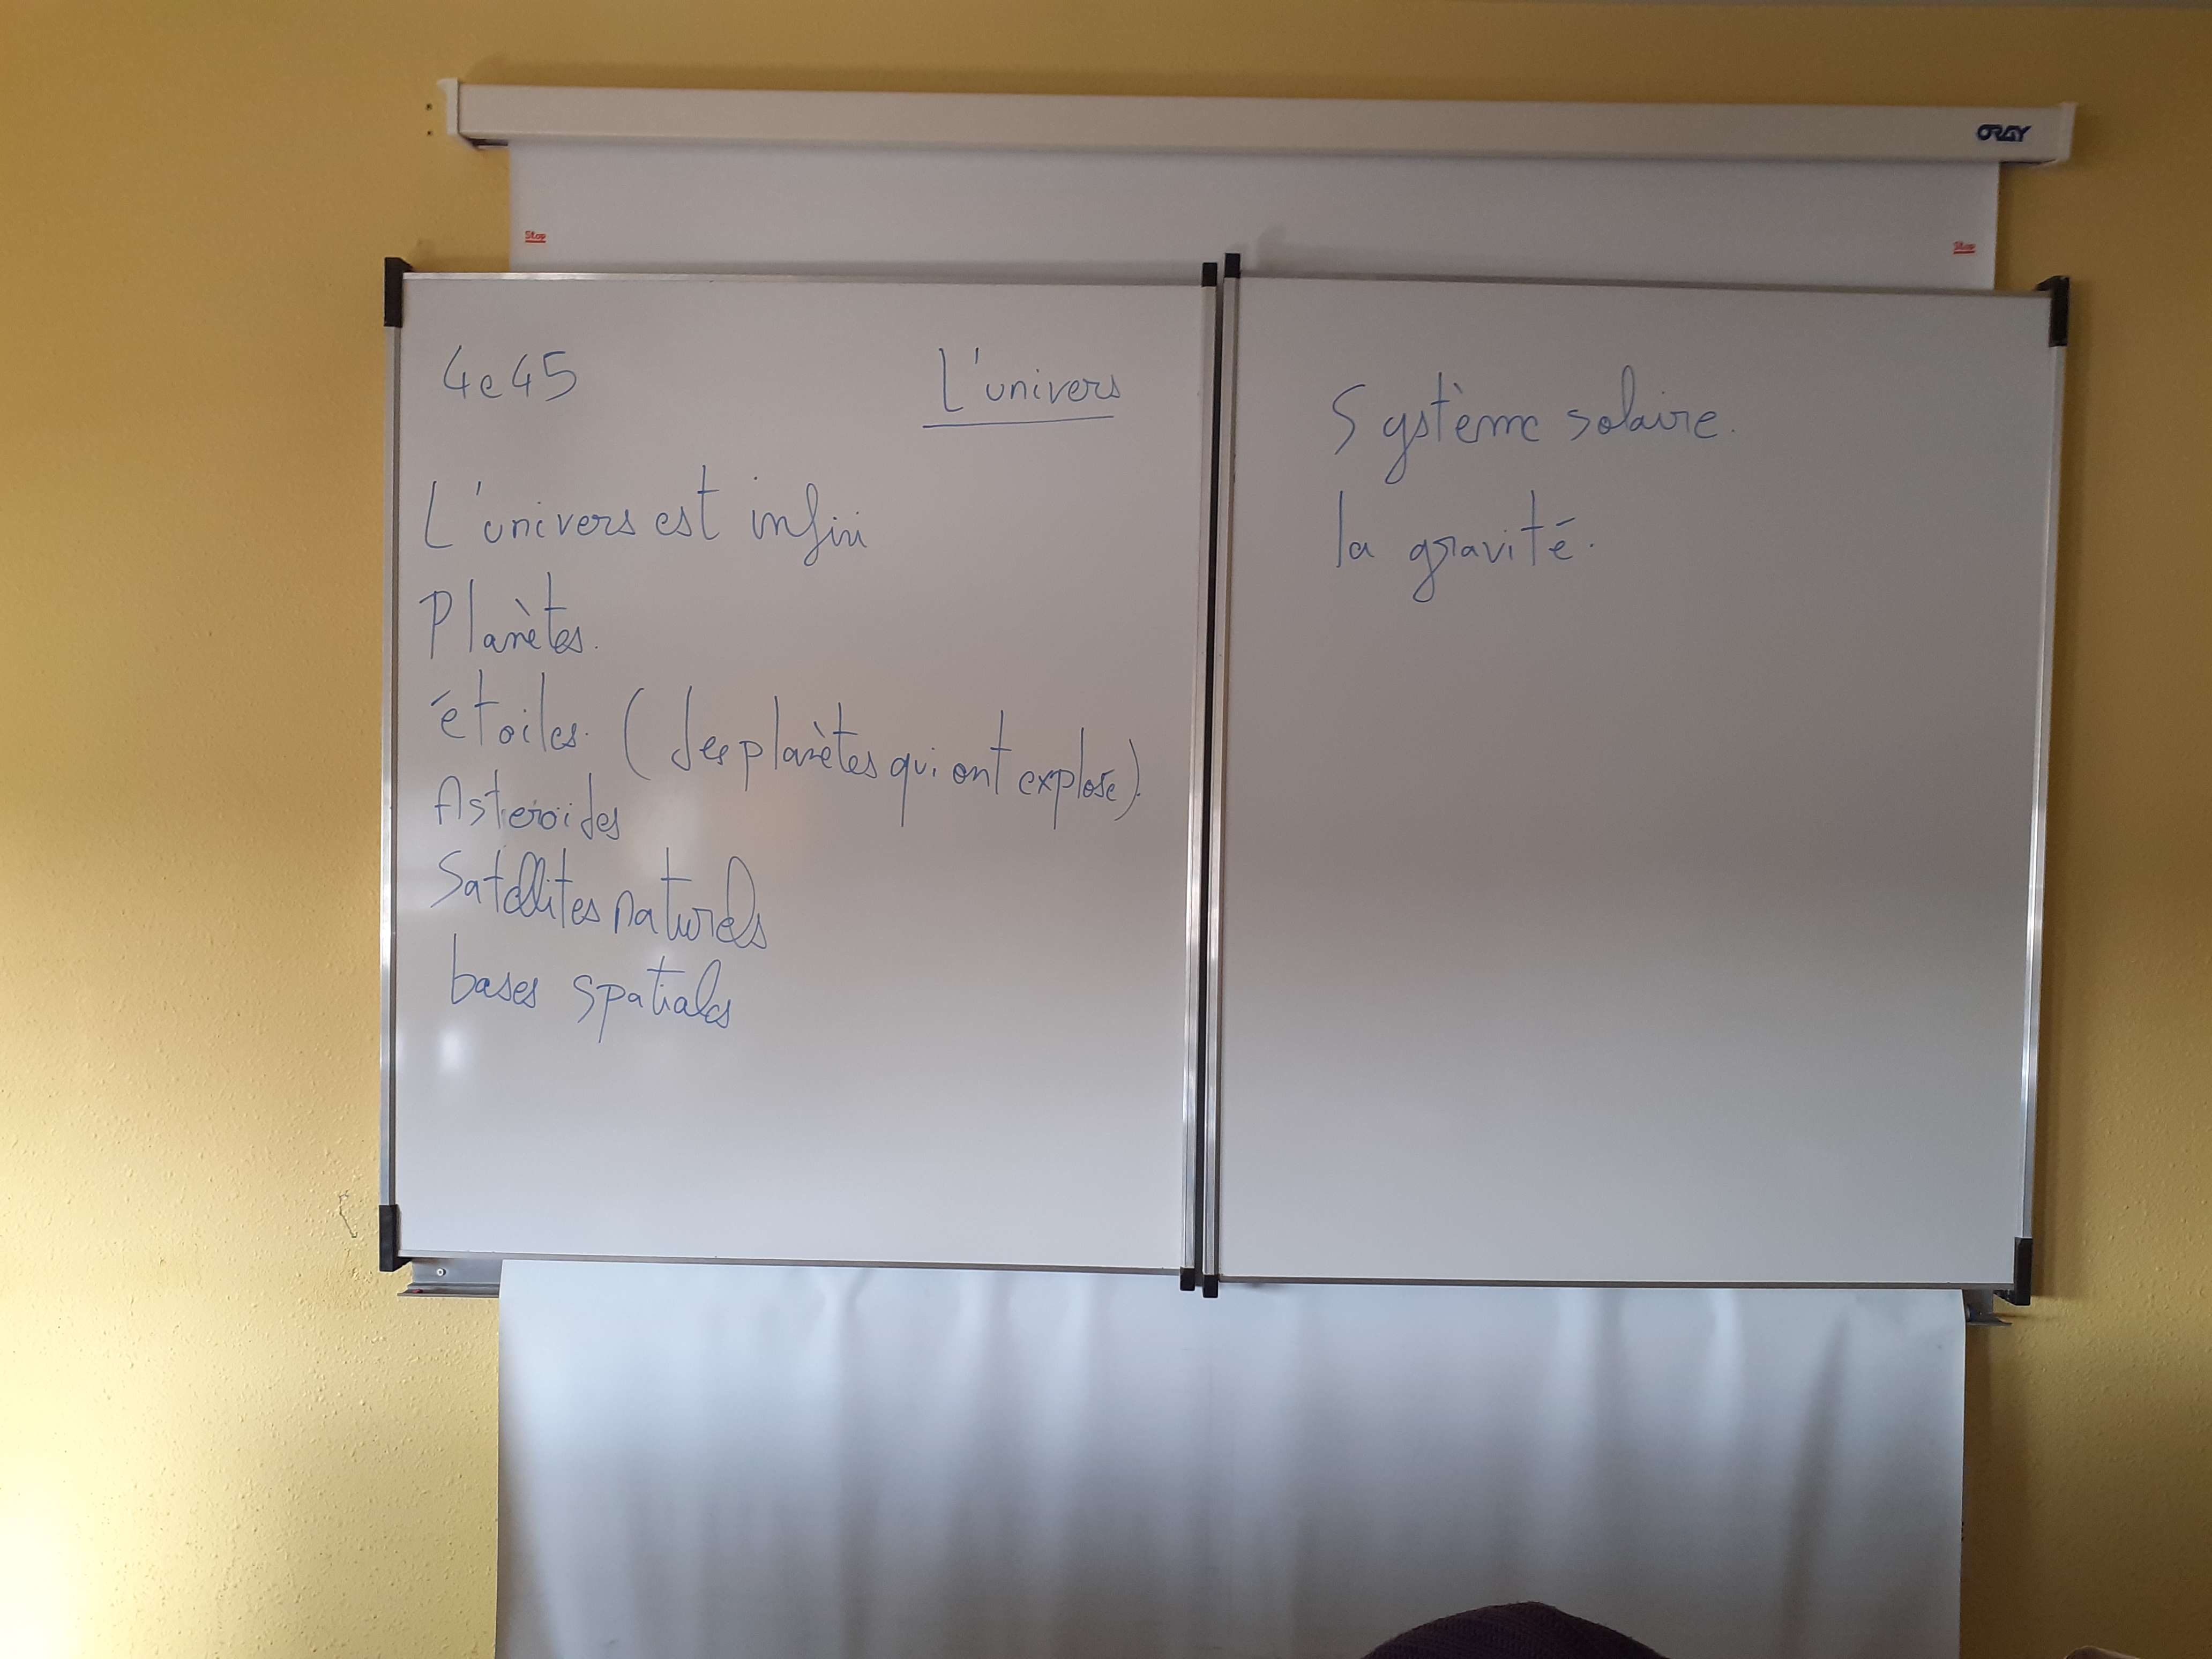 ORAY
Stop
Stop
4e45
L'univers
L'univers est infini
Planètes.
étoiles. (des planètes qui ont explosé).
Astéroïdes
Satellites naturels
bases spatiales
Système solaire.
la gravité.